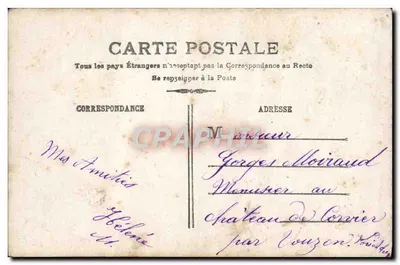 CARTE POSTALE
Tous les pays Étrangers n'acceptant pas la Correspondance au Recto
Se renseigner à la Poste
CORRESPONDANCE
ADRESSE
Mes Amitiés
Hélène
M.
Monsieur
Gorges Moiraud
Menuisier au
château de Corvier
par Vouzon
CPARAMA